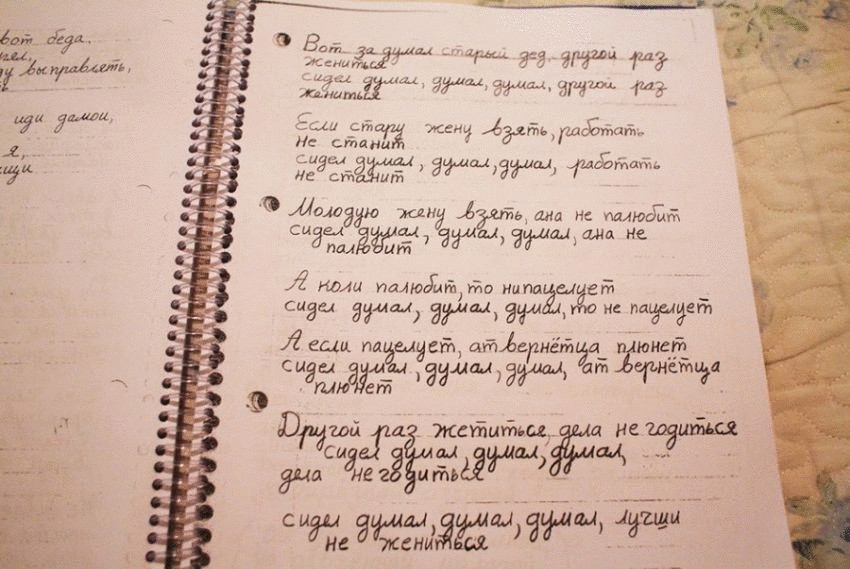 вот беда.
ду выправлять,
иди дамои,
я,
Вот за думал старый дед, другой раз
жениться
сидел думал, думал, думал, другой раз
жениться
Если стару жену взять, работать
не станит
сидел думал, думал, думал, работать
не станит
Молодую жену взять, ана не палюбит
сидел думал, думал, думал, ана не
палюбит
А коли палюбит, то нипацелует
сидел думал, думал, думал, то не пацелует
А если пацелует, ат вернётца плюнет
сидел думал, думал, думал, ат вернётца
плюнет
Другой раз жетиться, дела не годиться
сидел думал, думал, думал,
дела не годиться
сидел думал, думал, думал, лучши
не жениться